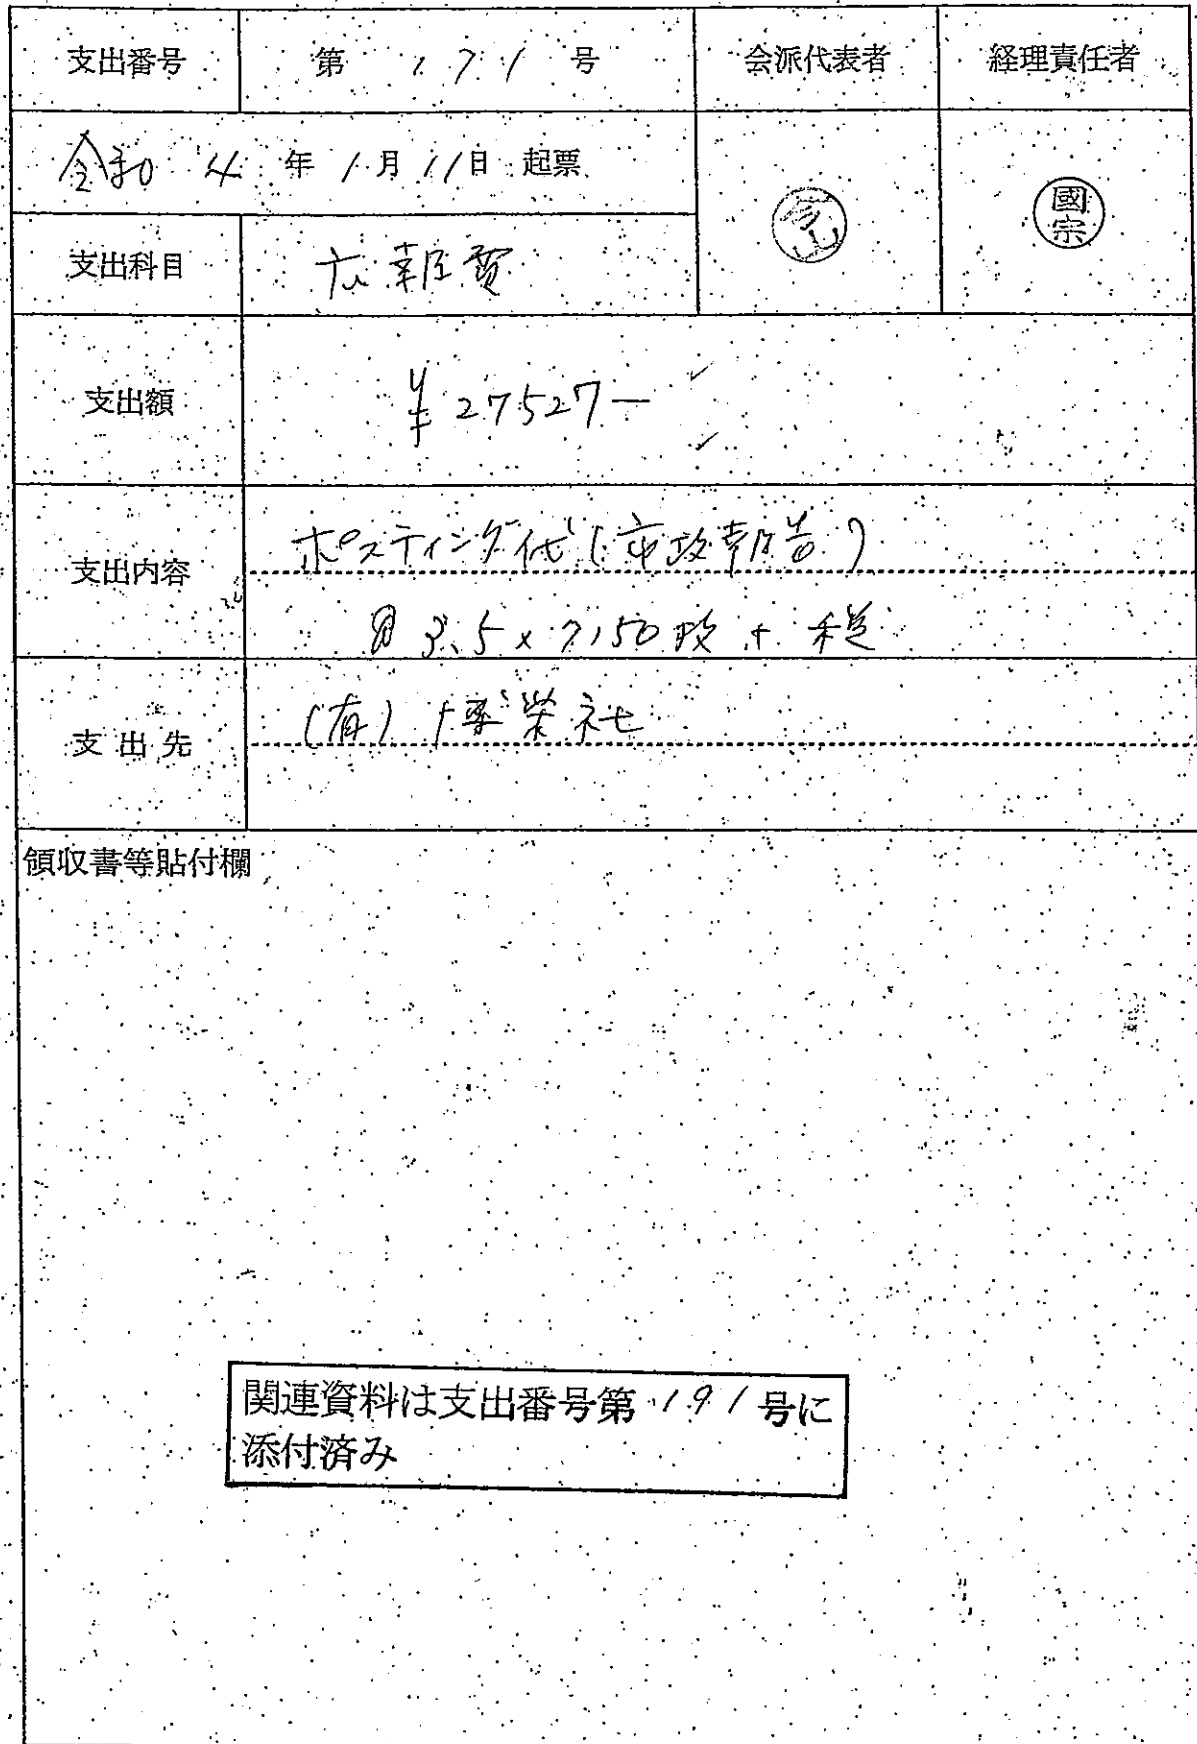 支出番号 第 171 号 会派代表者 経理責任者
令和 4 年 1 月 11 日 起票
今山
國宗
支出科目 広報費
支出額 ¥27527-
支出内容 ポスティング代(市政報告)
@3.5×7,150枚+税
支出先 (有)博栄社
領収書等貼付欄
関連資料は支出番号第 191 号に
添付済み